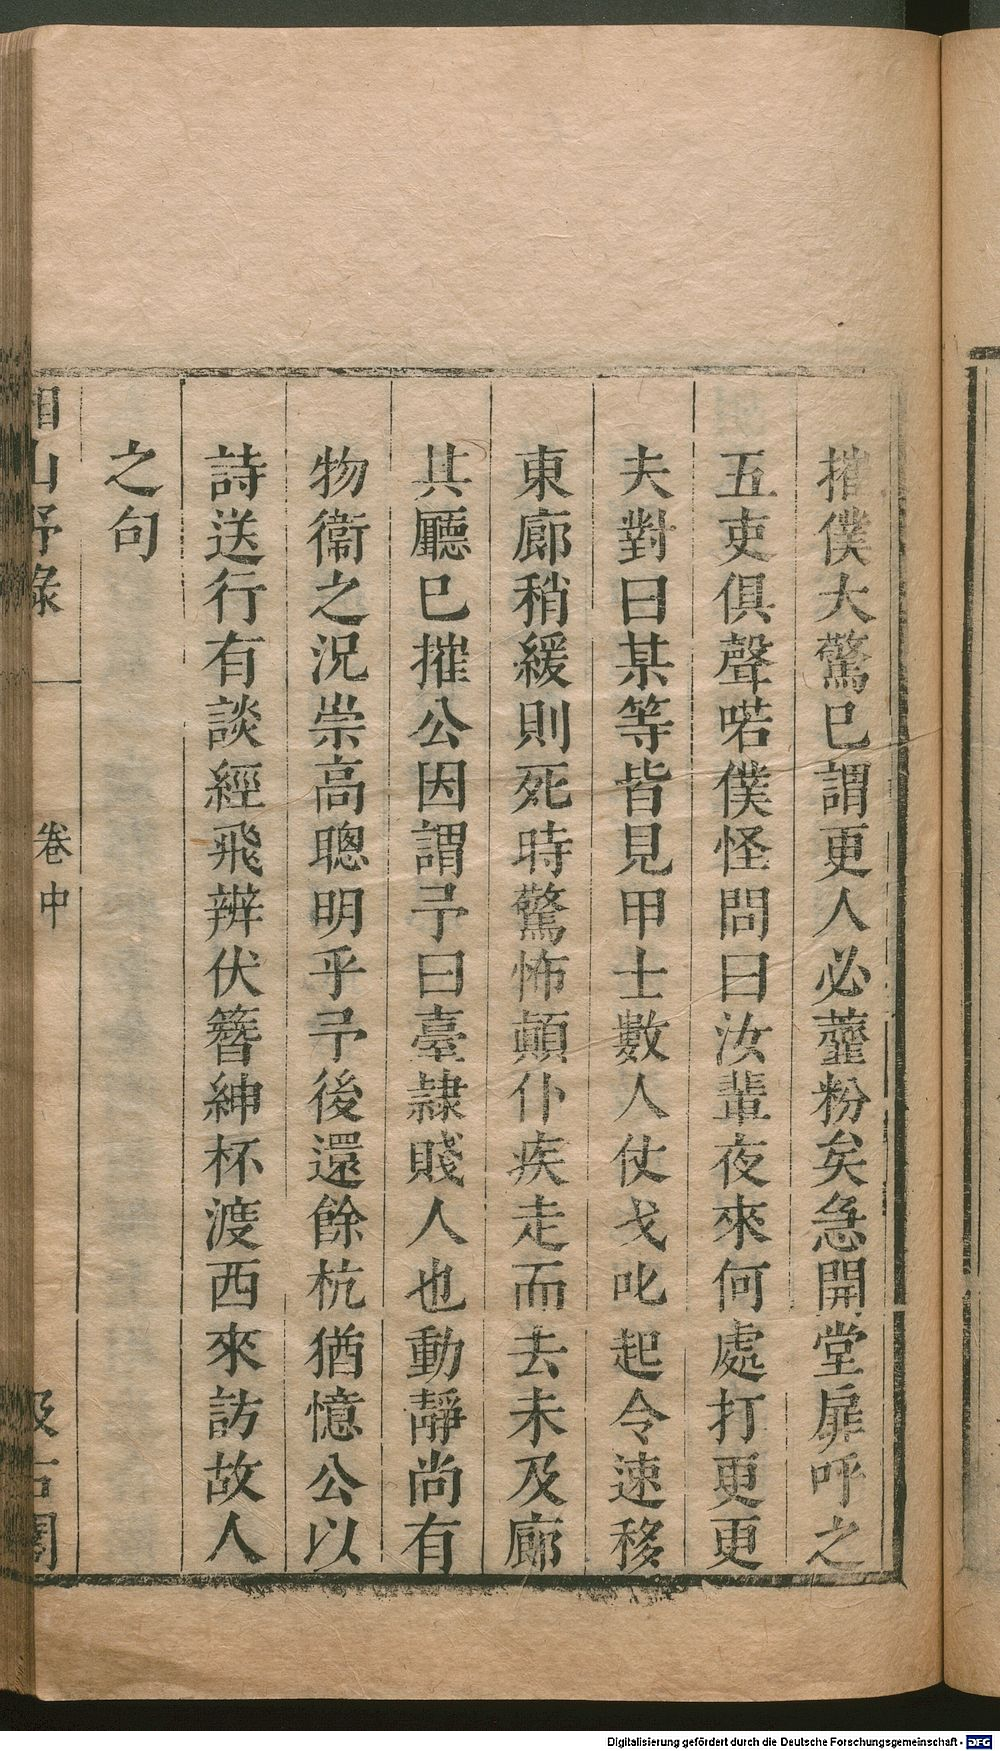 摧僕大驚已謂更人必虀粉矣急開堂扉呼之
五吏俱聲喏僕怪問曰汝輩夜來何處打更更
夫對曰某等皆見甲士數人仗戈叱起令速移
東廊稍緩則死時驚怖顛仆疾走而去未及廊
其廳已摧公因謂予曰臺隷賤人也動靜尚有
物衞之況崇高聰明乎予後還餘杭猶憶公以
詩送行有談經飛辨伏簪紳杯渡西來訪故人
之句
湘山野錄
卷中
汲古閣
Digitalisierung gefördert durch die Deutsche Forschungsgemeinschaft - DFG